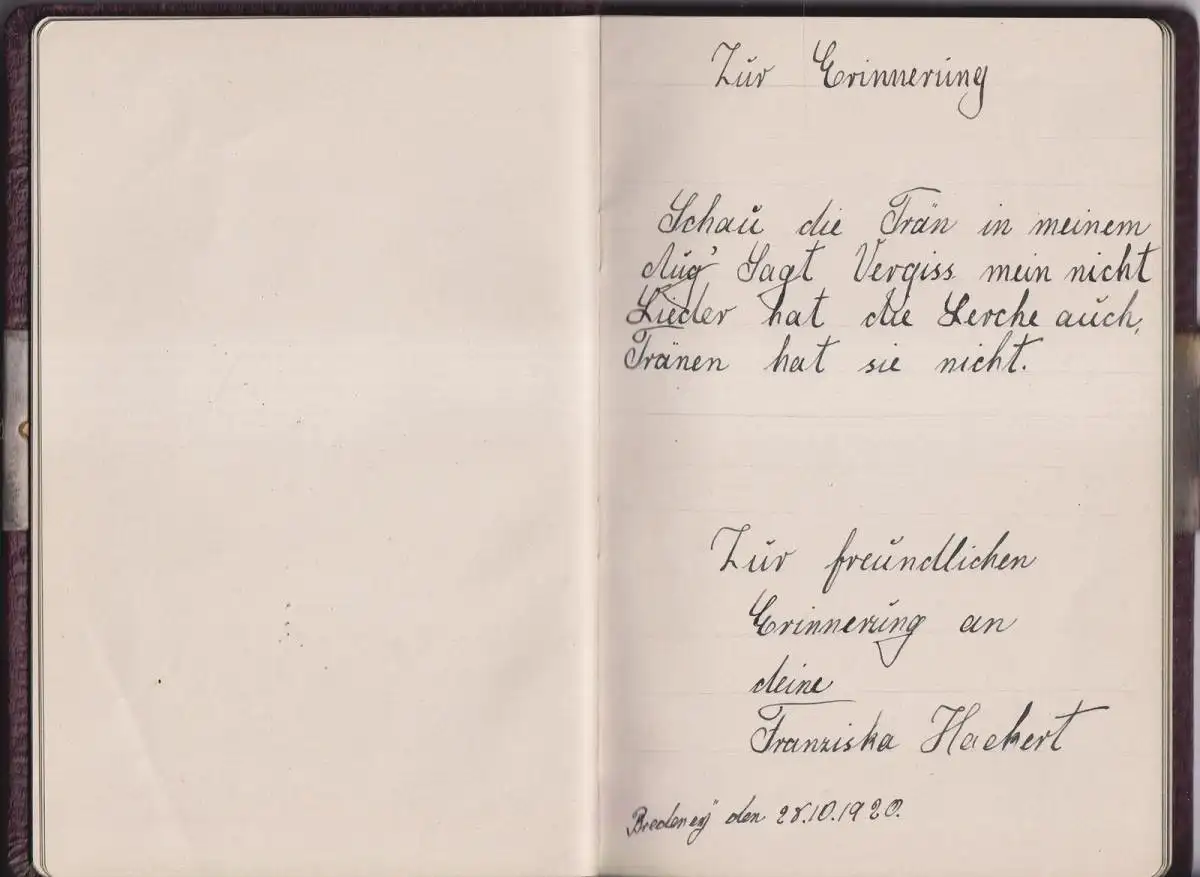 Zur Erinnerung
Schau die Trän in meinem
Aug' Sagt Vergiss mein nicht
Lieder hat die Lerche auch,
Tränen hat sie nicht.
Zur freundlichen
Erinnerung an
deine
Franziska Hackert
Bredeney den 28.10.1920.